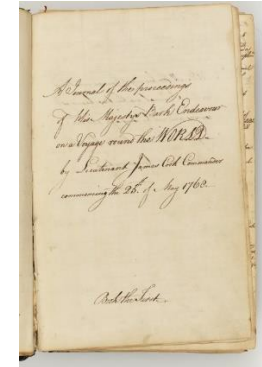 A Journal of the proceedings
of His Majestys Bark Endeavour
on a Voyage round the WORLD
by Lieutenant James Cook Commander
commencing the 25th of May 1768.
Book the